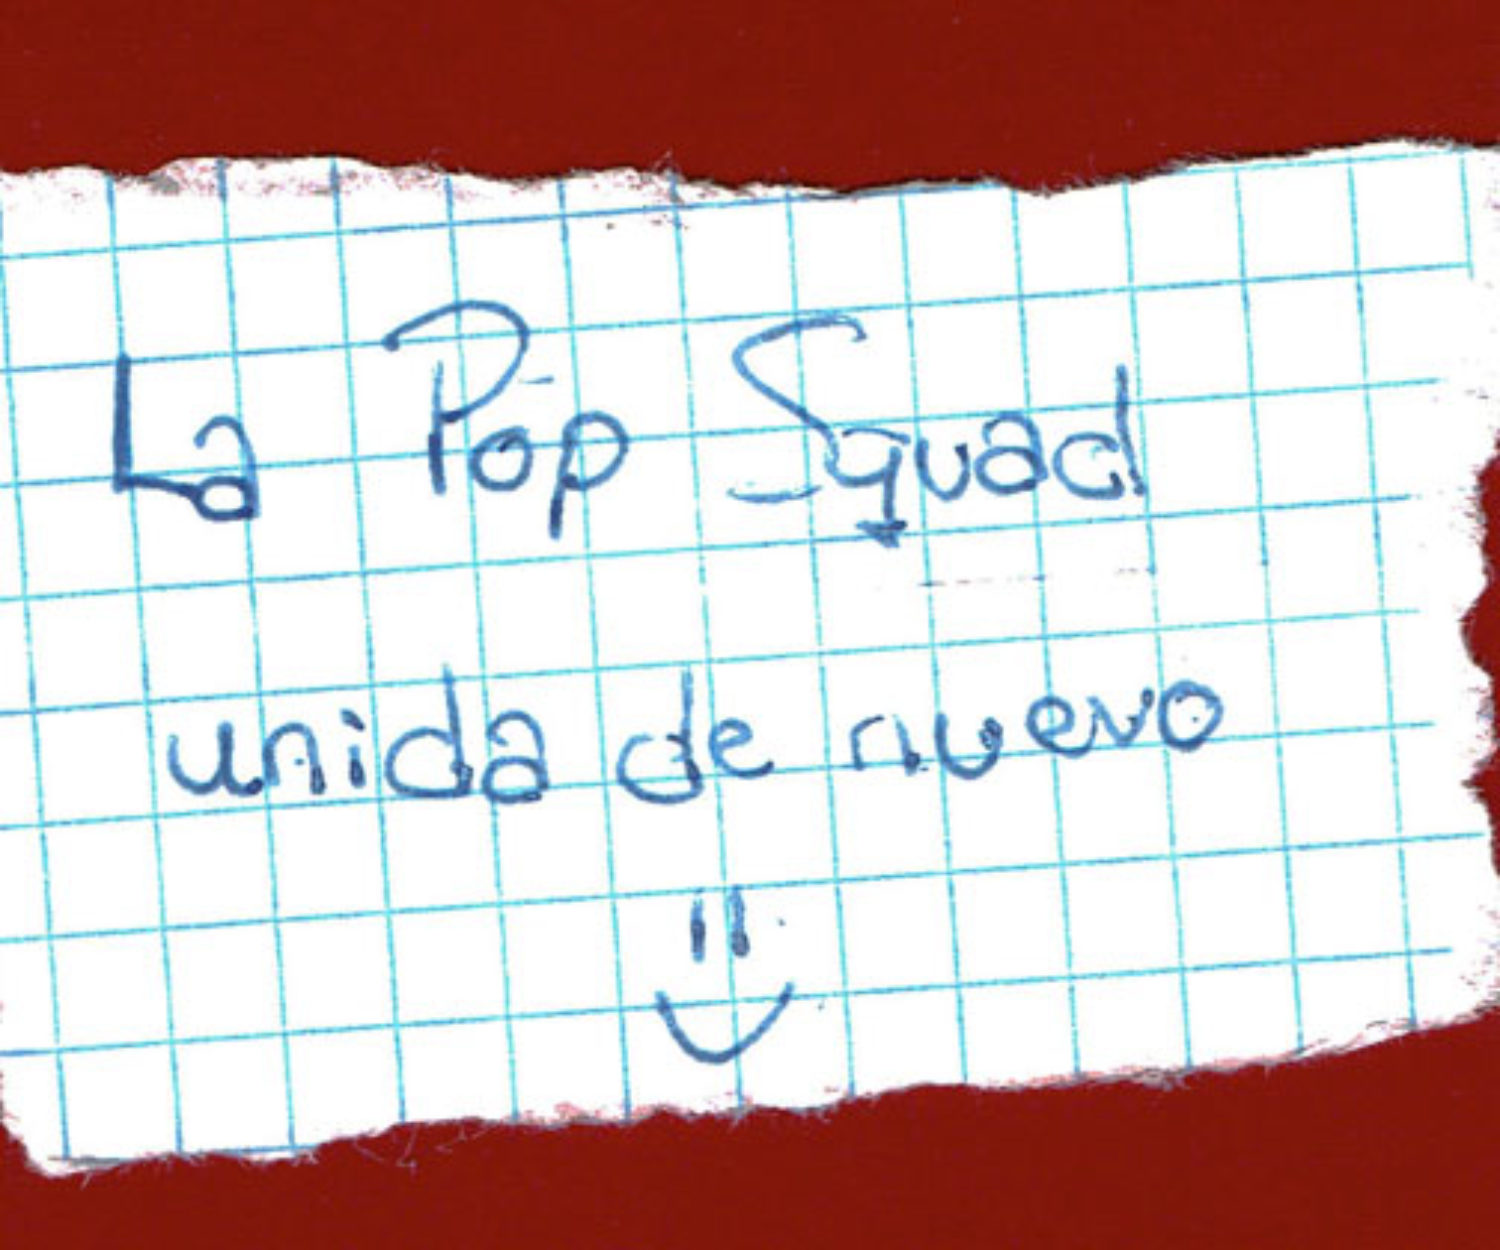 La Pop Squad
unida de nuevo